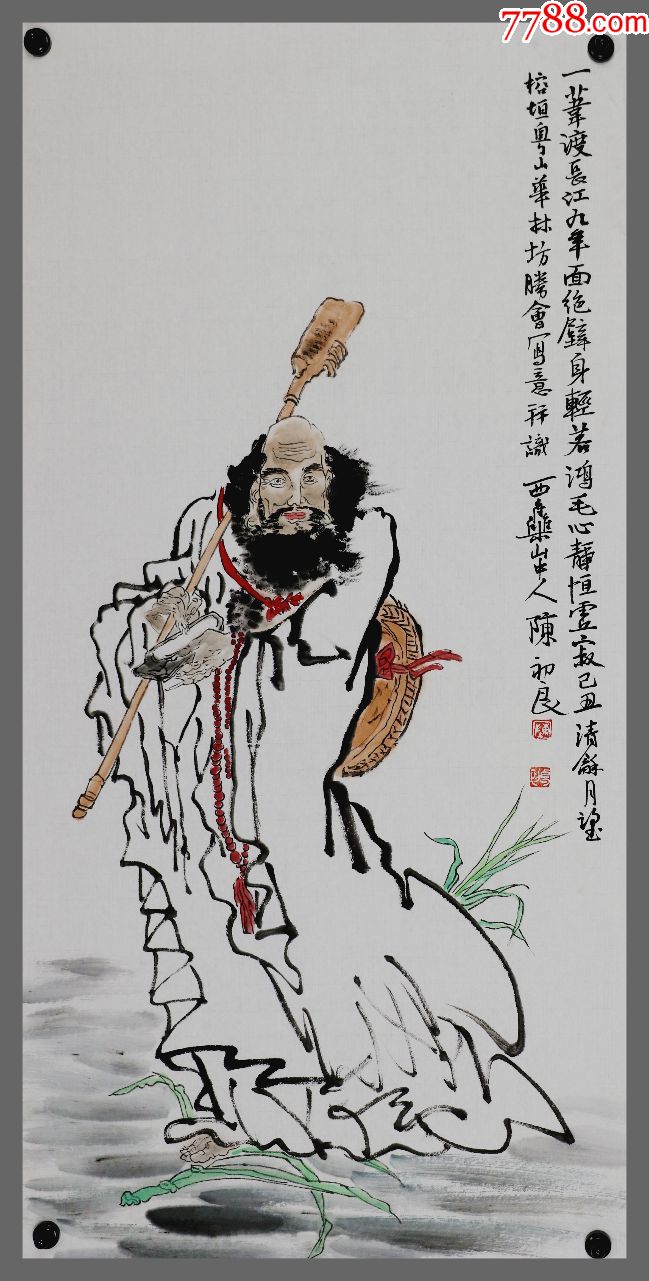 7788.com
一葦渡長江九年面絶壁身輕若鴻毛心靜恒虛寂己丑清龢月望
榕垣粤山華林坊勝會寫意并識 西樂山中人陳初良